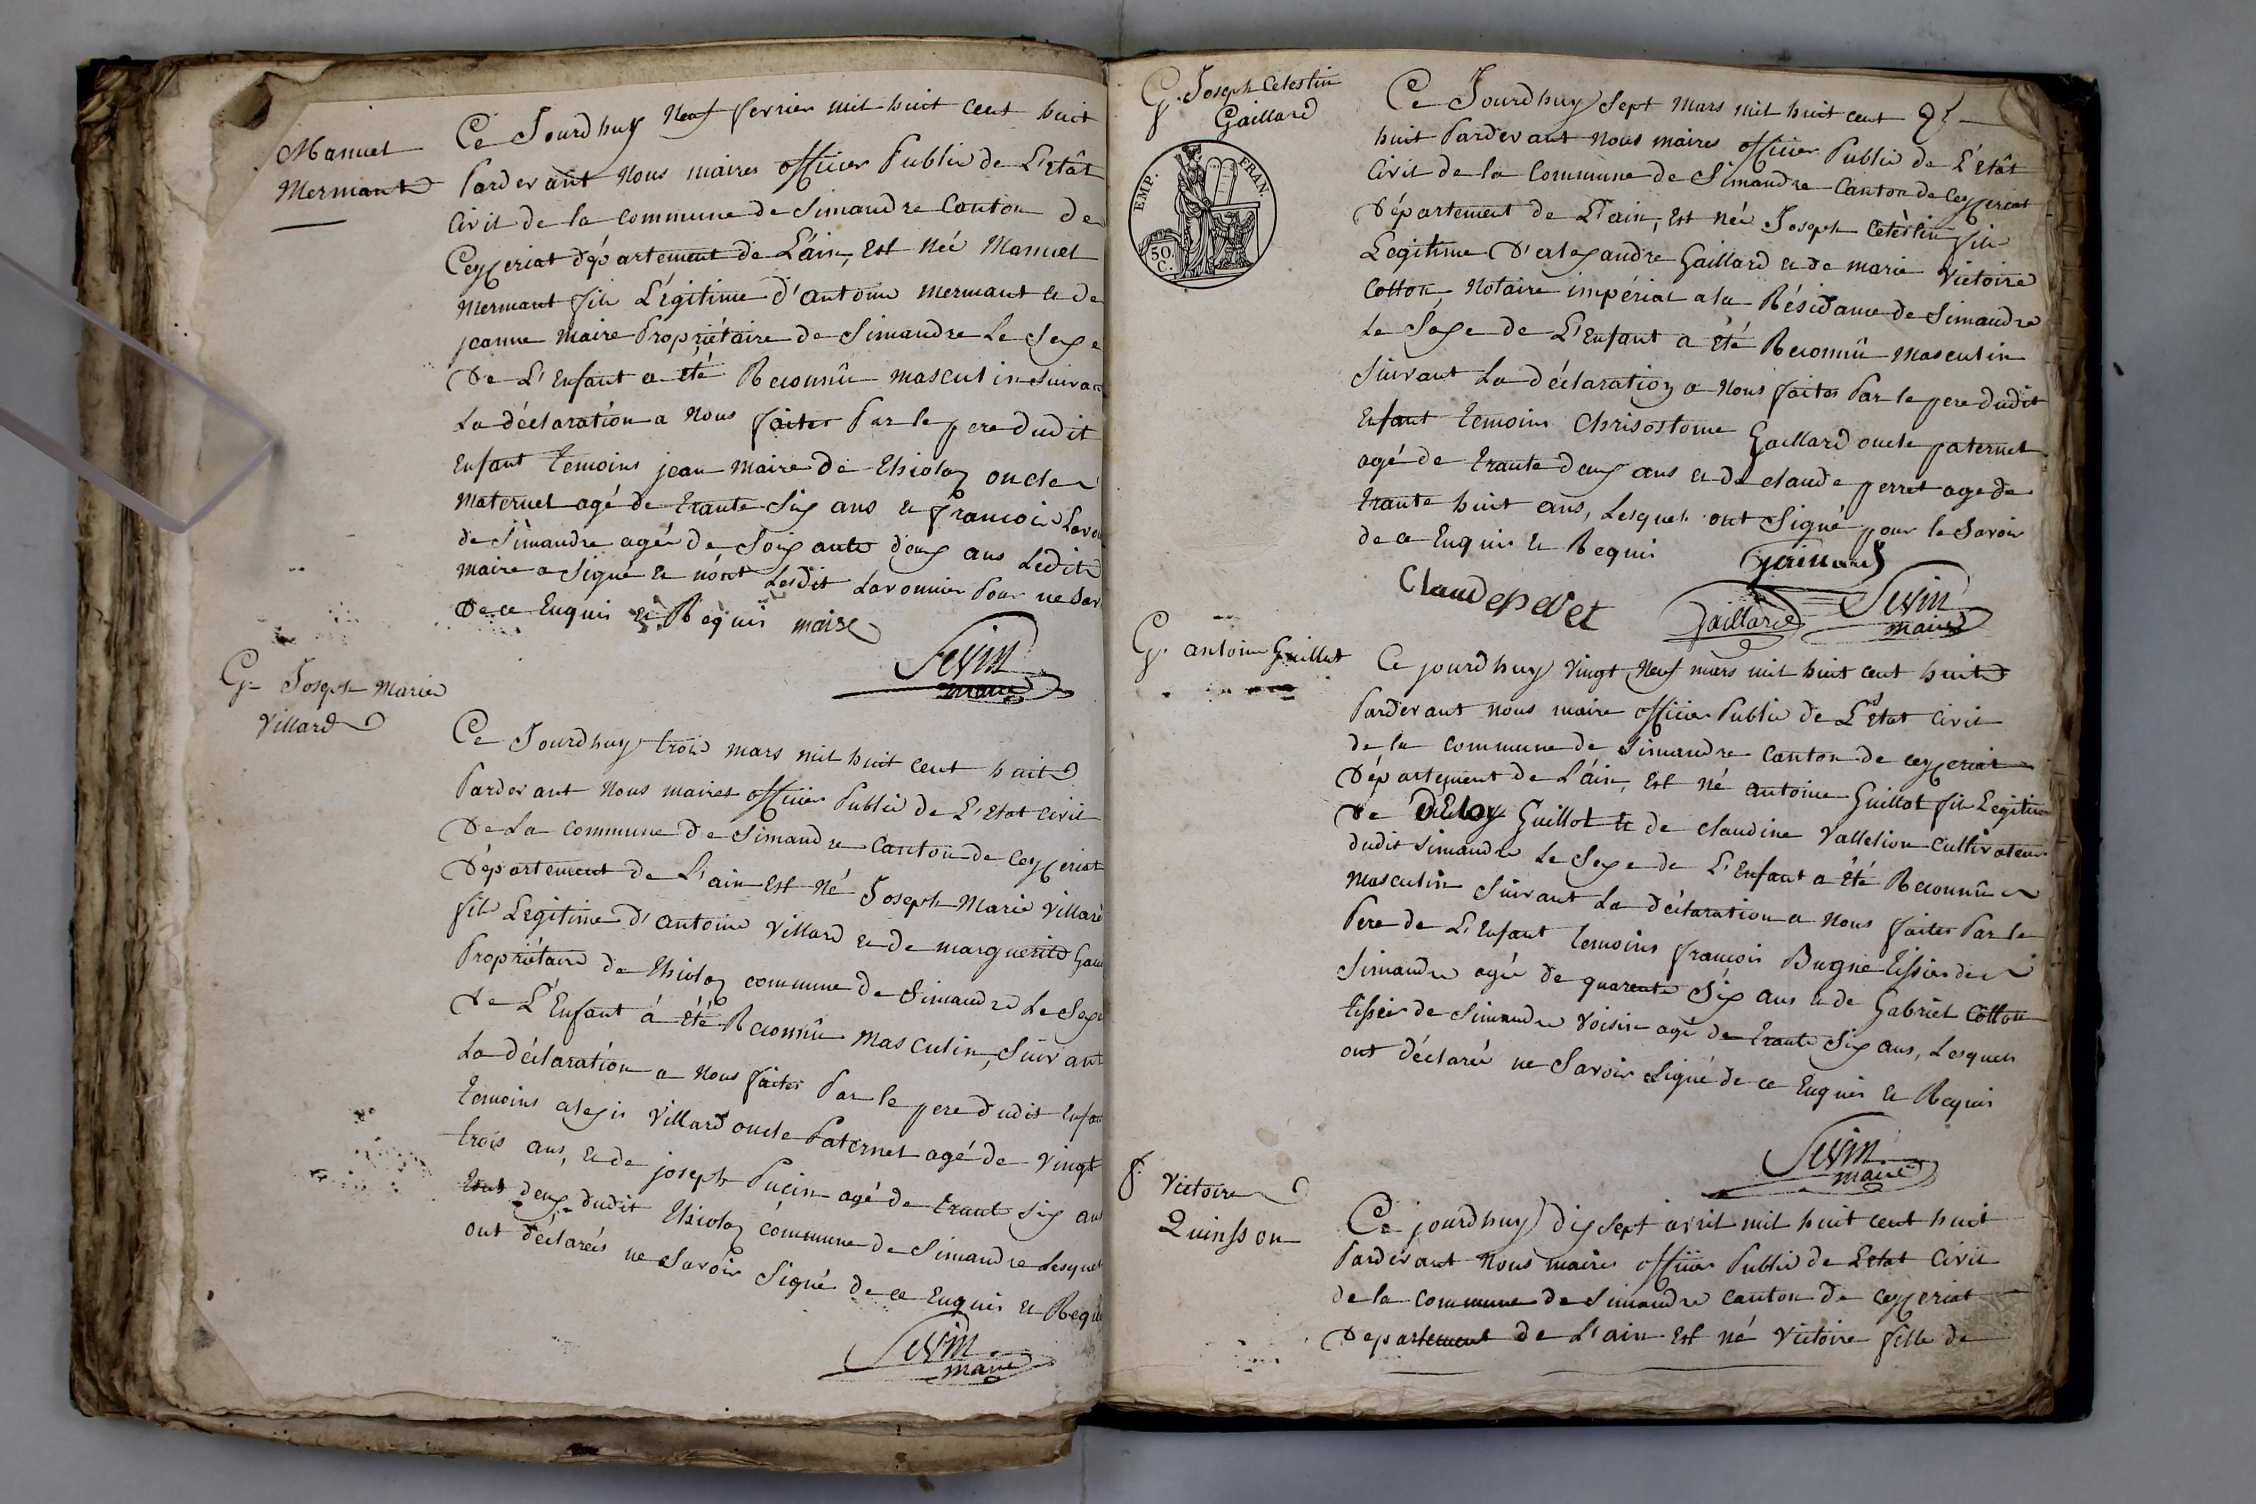 Manuel
Mermant
Ce Jourdhuy Neuf fevrier mil huit cent huit
Pardevant Nous maires officier Public de L'Etât
Civil de la commune de Simandre Canton de
Ceyzeriat département de L'áin, Est Née Manuel
Mermant fils Légitime d'antoine Mermant et de
jeanne Maire Propriétaire de Simandre Le Sexe
De L'Enfant a été Reconnû masculin Suivan
La déclaration a Nous faites Par le pere dudit
Enfant Temoins jean Maire de Thiolaz oncle
Maternel agé de trante Six ans et francois Lavon
de Simandre agée de Soixante deux ans Ledit
Maire a Signé et nónt Lesdit Lavonnier Pour ne Sav
De ce Enquis et Requis maire
Sevin
maire
G. Joseph Marie
Villard
Ce Jourdhuy trois mars mil huit cent huit
Pardevant Nous maires officier Public de L'Etat Civil
De La commune de Simandre Canton de Ceyzeriat
Département de L'ain Est Né Joseph Marie Villard
fils Legitime d'antoine Villard et de marguerite
Propriétaire de Thiolaz commune de Simandre Le Sexe
De L'Enfant á été Reconnû Masculin, Suivant
La déclaration a Nous faites Par le pere dudit Enfan
Temoins alexis Villard oncle Paternel agé de Vingt
trois ans, et de joseph Pucin agé de trant six ans
tous deux dudit Thiolaz commune de Simandre Lesquel
ont déclareés ne Savóir Signé de ce Enquis et Requi
Sevin
maire
G. Joseph Celestin
Gaillard
EMP. FRAN.
50.
C.
Ce Jourdhuy Sept Mars mil huit cent
huit Pardevant Nous maires officier Public de L'Etât
Civil de la Commune de Simandre Canton de Ceyzeriat
Département de L'ain, Est Née Joseph Celèstin fils
Legitime D'alexandre Gaillard et de marie Victoire
Cotton, Notaire impérial a la Résidance de Simandre
Le Sexe de L'Enfant a été Reconnû Masculin
Suivant La déclaration a Nous faites Par le pere dudit
Enfant Temoins Chrisostome Gaillard oncle paternel
agé de trante deux ans et de claude perret age de
trante huit ans, Lesquels ont Signé pour le Savoir
de ce Enquis et Requis Gaillard
Claude peret Gaillard Sevin
maire
G. antoine Guillot
Ce jourdhuy Vingt Neuf mars mil huit cent huit
Pardevant nous maire officier Public de L'Etat Civil
de la commune de Simandre Canton de Ceyzeriat
Département de L'áin, Est né antoine Guillot fils Legitime
De d'Eloy Guillot et de claudine Valletion Cultivateur
dudit Simandre Le Sexe de L'Enfant a été Reconnû
Masculin Suivant La déclaration a Nous faites Par le
Pere de L'Enfant Temoins francois Bugne tissier de
Simandre agée de quarente Six ans et de Gabriel Cotton
tissier de Simandre Voisin agé de trante Six ans, Lesquels
ont déclarée ne Savoir Signé de ce Enquis et Requis
Sevin
maire
f. Victoire
Quinsson
Ce jourdhuy dix sept avril mil huit cent huit
Pardevant Nous maires officier Public de L'Etat Civil
de la commune de Simandre canton de ceyzeriat
Departement de L'ain Est né Victoire fille de